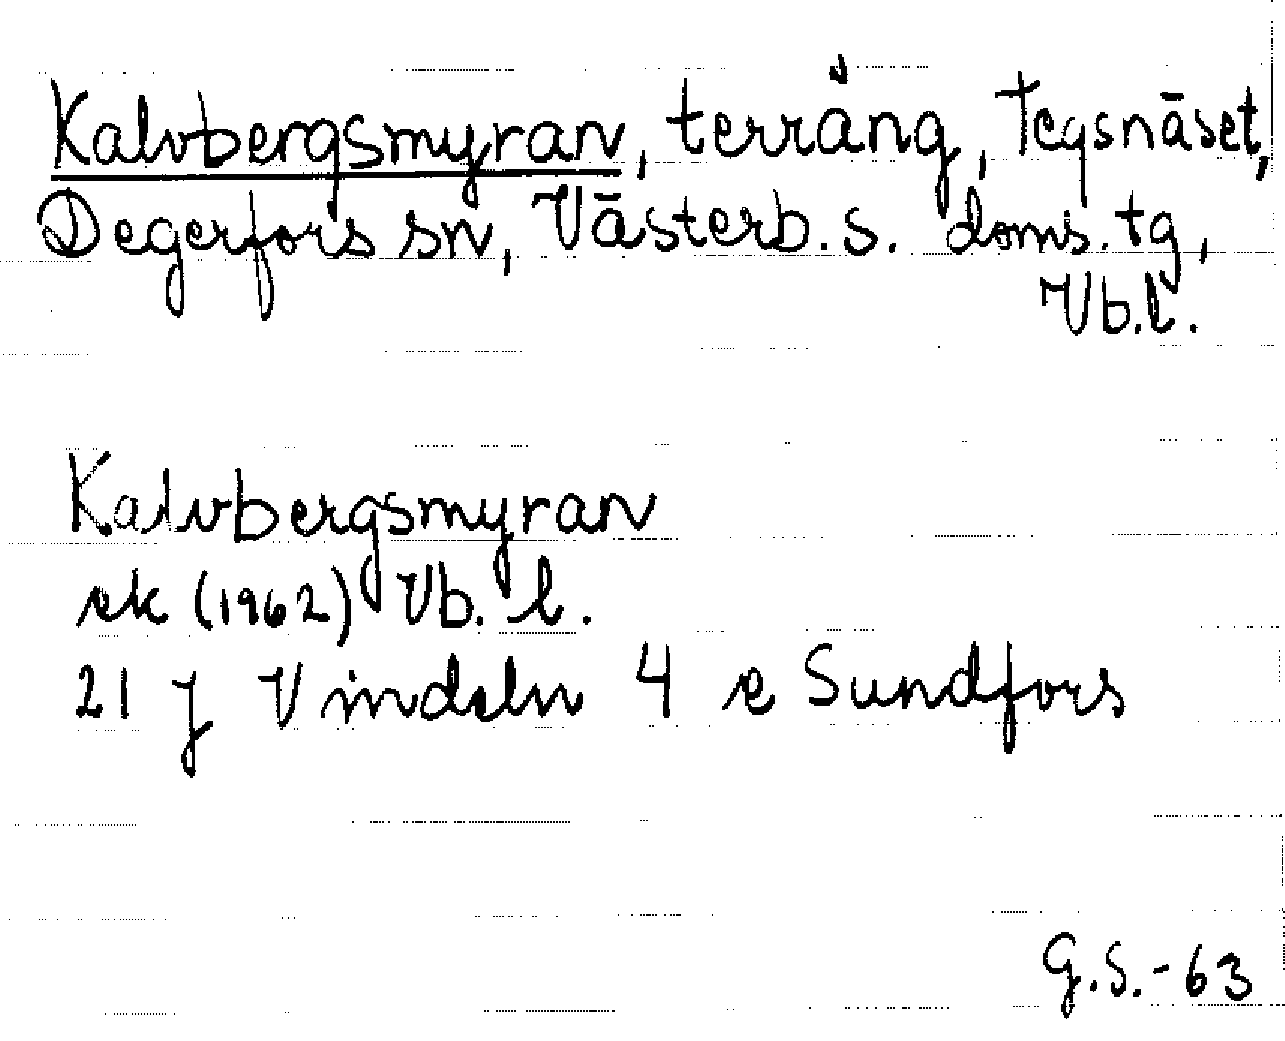 Kalvbergsmyran, terräng, Tegsnäset,
Degerfors sn, Västerb. s. doms. tg,
Vb.l.
Kalvbergsmyran
ek (1962) Vb. l.
21 J Vindeln 4 e Sundfors
G.S.-63